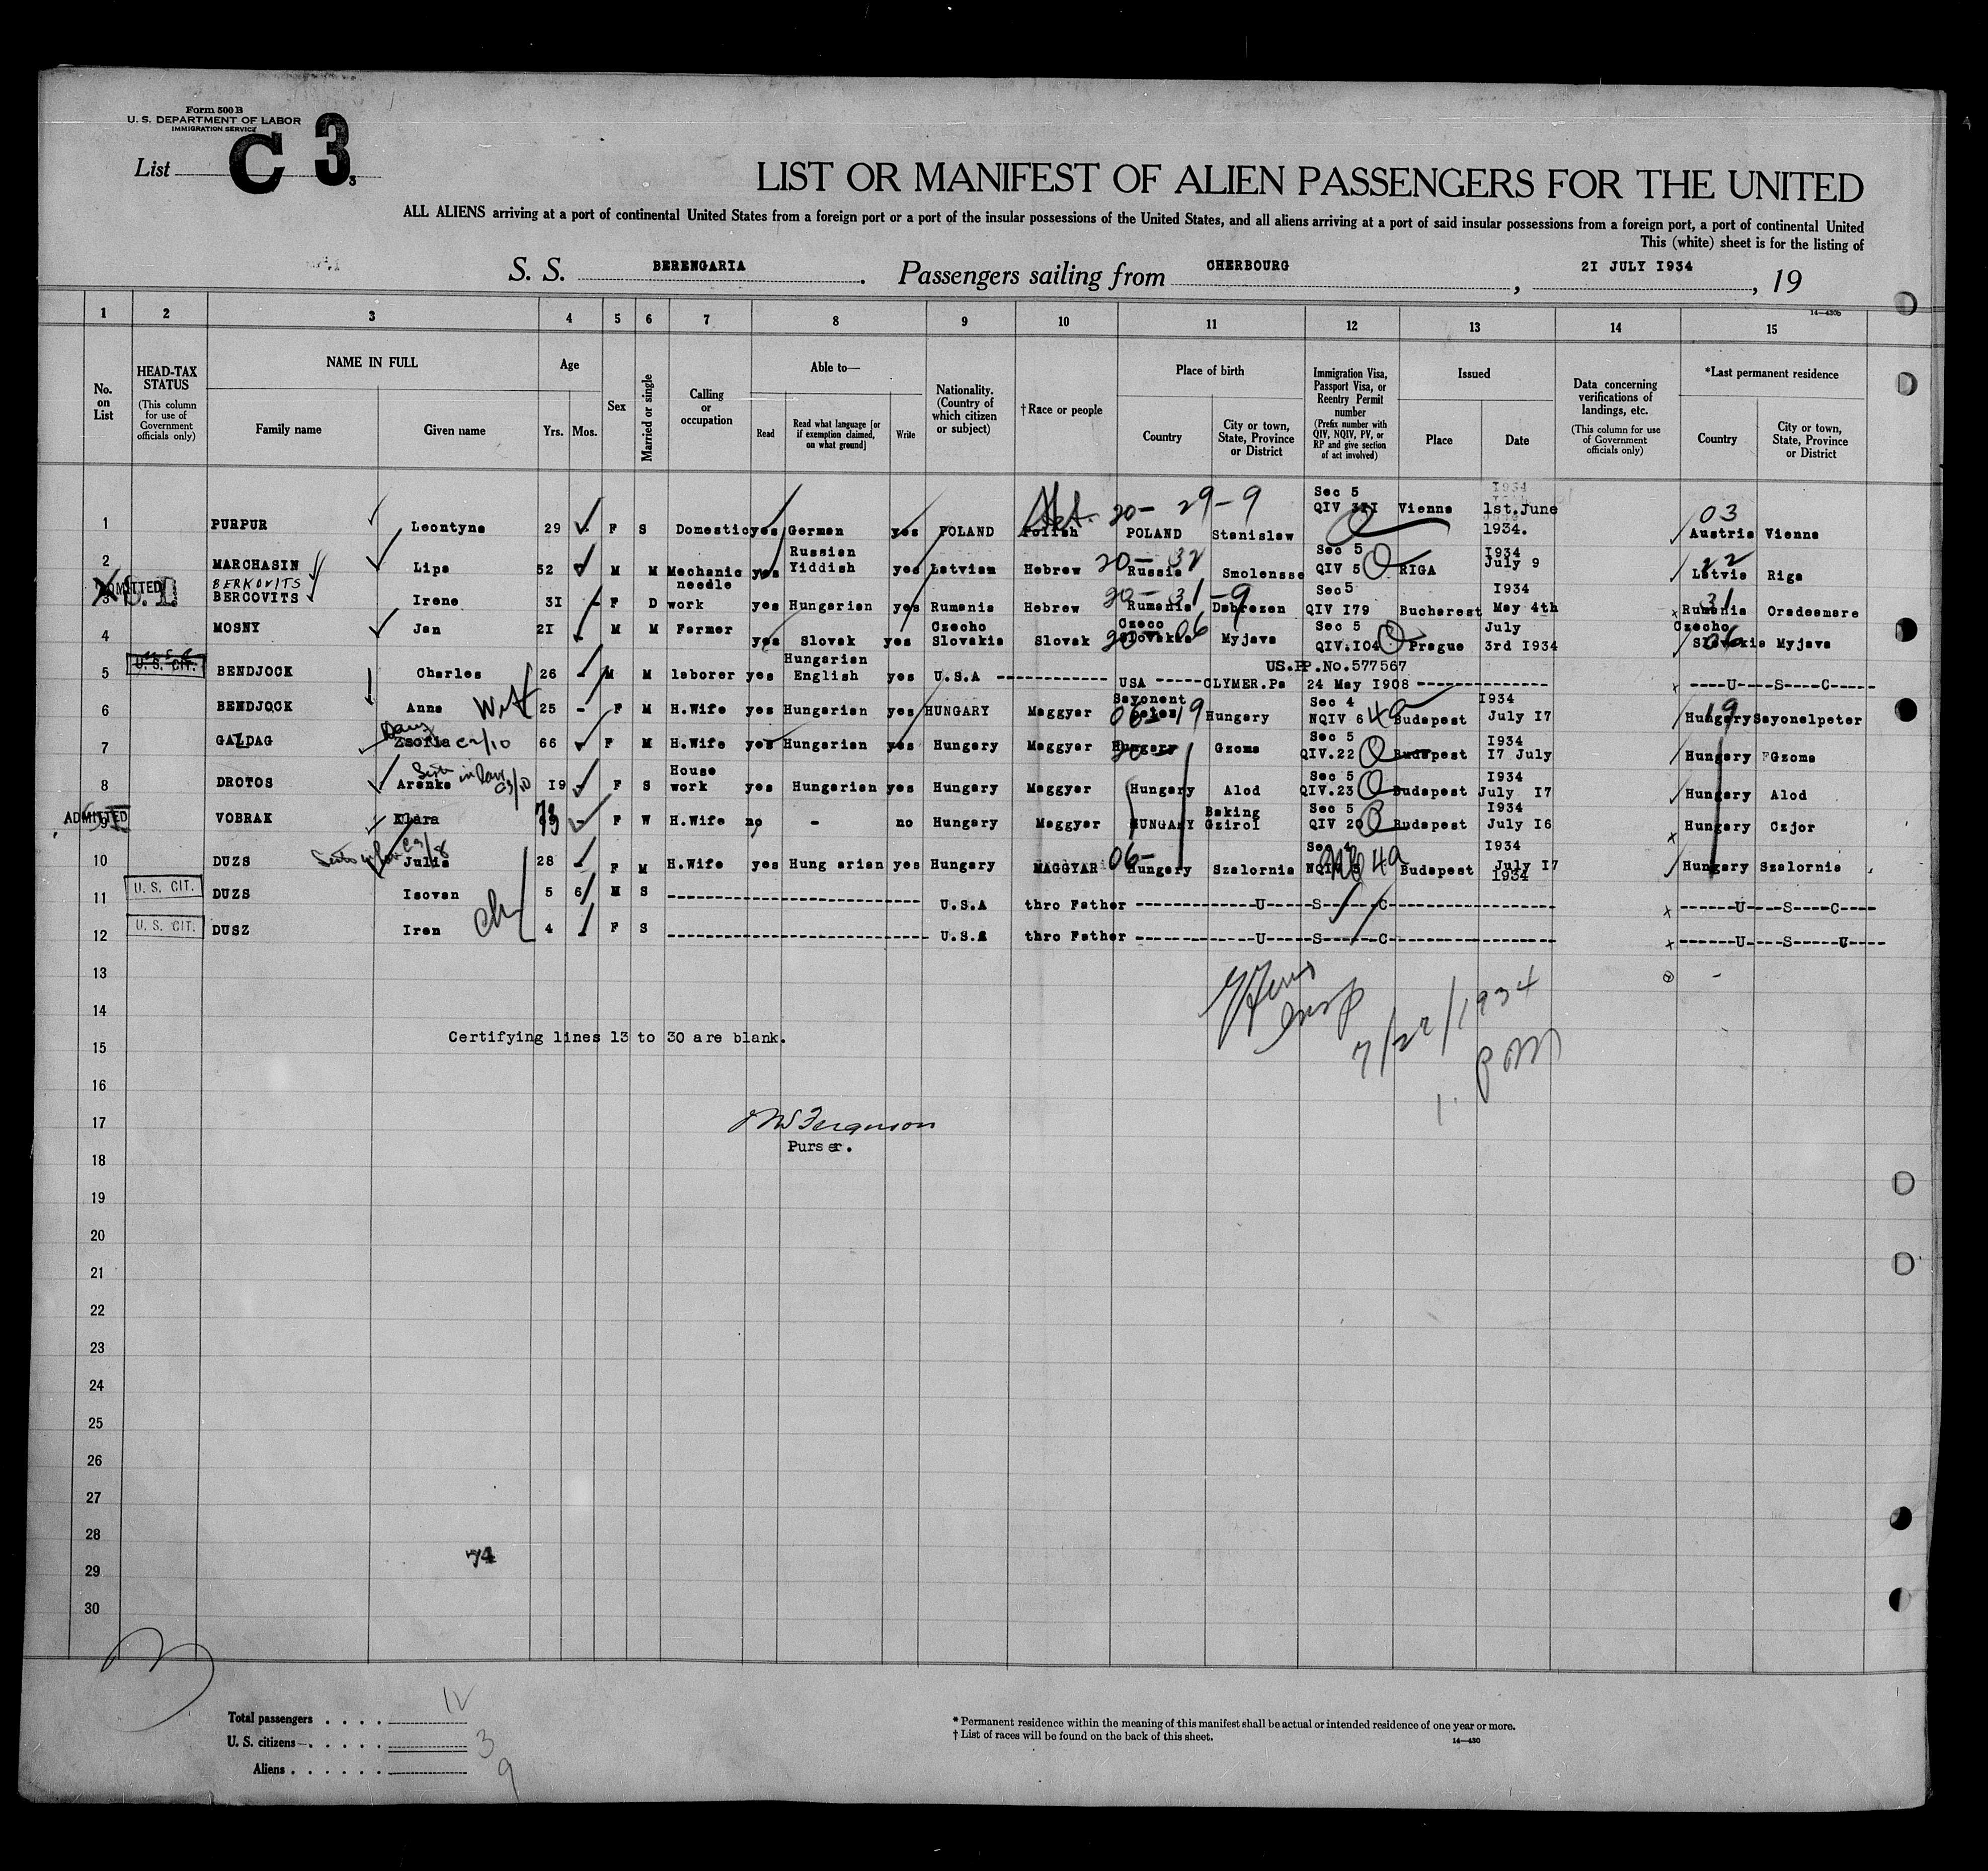 Form 500 B
U. S. DEPARTMENT OF LABOR
IMMIGRATION SERVICE
List C 3
LIST OR MANIFEST OF ALIEN PASSENGERS FOR THE UNITED
ALL ALIENS arriving at a port of continental United States from a foreign port or a port of the insular possessions of the United States, and all aliens arriving at a port of said insular possessions from a foreign port, a port of continental United
This (white) sheet is for the listing of
S. S. BERENGARIA. Passengers sailing from CHERBOURG, 21 JULY 1934, 19
1 2 3 4 5 6 7 8 9 10 11 12 13 14 15
14—430b
No. on List
HEAD-TAX STATUS (This column for use of Government officials only)
NAME IN FULL
Family name Given name
Age
Yrs. Mos.
Sex
Married or single
Calling or occupation
Able to—
Read Read what language [or if exemption claimed, on what ground] Write
Nationality. (Country of which citizen or subject)
† Race or people
Place of birth
Country City or town, State, Province or District
Immigration Visa, Passport Visa, or Reentry Permit number (Prefix number with QIV, NQIV, PV, or RP and give section of act involved)
Issued
Place Date
Data concerning verifications of landings, etc. (This column for use of Government officials only)
*Last permanent residence
Country City or town, State, Province or District
1 PURPUR Leontyne 29 F S Domestic yes German yes POLAND Polish 20- 29-9 POLAND Stanislaw Sec 5 QIV Vienna 1st.June 1934. 03 Austria Vienna
2 MARCHASIN Lipa 52 M M Mechanic yes Russian Yiddish yes Latvian Hebrew 20-32 Russia Smolensse Sec 5 QIV 5 RIGA 1934 July 9 22 Latvia Riga
ADMITTED
3 BERKOVITS BERCOVITS Irene 3I - F D needle work yes Hungarian yes Rumania Hebrew 20-31-9 Rumania Debrezen Sec5 QIV I79 Bucharest I934 May 4th 31 Rumania Oradeamare
4 MOSNY Jan 2I M M Farmer yes Slovak yes Czecho Slovakia Slovak 20 06 Czeco Slovakia Myjava Sec 5 QIV.IO4 Prague July 3rd I934 06 Czecho Slovakia Myjava
5 U. S. CIT. BENDJOCK Charles 26 - M M laborer yes Hungarian English yes U.S.A ------------ USA -----CLYMER.Pa US.PP.No.577567 24 May I908 --------------- ----U----S----C-----
6 BENDJOCK Anna 25 - F M H.Wife yes Hungarian yes HUNGARY Magyar 06-19 Hungary Sec 4 NQIV 6 4a Budapest I934 July I7 19 Hungary Sayonelpeter
7 GALDAG Zsofia C2/10 66 F M H.Wife yes Hungarian yes Hungary Magyar Hungary Gzoma Sec 5 QIV.22 Budapest I934 I7 July Hungary Gzoma
8 DROTOS Aranka I9 - F S House work yes Hungarian yes Hungary Magyar Hungary Alod Sec 5 QIV.23 Budapest I934 July I7 Hungary Alod
ADMITTED
9 VOBRAK Klara - F W H.Wife no - no Hungary Magyar HUNGARY Gzirol Sec 5 QIV 20 Budapest I934 July I6 Hungary Czjor
10 DUZS Julia 28 - F M H.Wife yes Hungarian yes Hungary MAGGYAR 06- Hungary Szalornia Sec 4 NQIV 5 4a Budapest I934 July I7 1934 Hungary Szalornia
11 U. S. CIT. DUZS Isovan 5 6 M S ------------------------ U.S.A thro Father ------------U-----S------C---------------- ------U----S----C----
12 U. S. CIT. DUSZ Iren 4 F S ------------------------ U.S.A thro Father ------------U-----S------C---------------- ------U----S-----C----
13
14
Certifying lines 13 to 30 are blank.
15
7/27/1934
1. PM
16
17
Ferguson
Purser.
18
19
20
21
22
23
24
25
26
27
28
74
29
30
Total passengers . . . . 12
U. S. citizens . . . . . 3
Aliens . . . . . . 9
* Permanent residence within the meaning of this manifest shall be actual or intended residence of one year or more.
† List of races will be found on the back of this sheet.
14—430